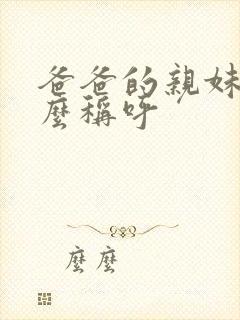 爸爸的親妹
麼稱呼
麼麼